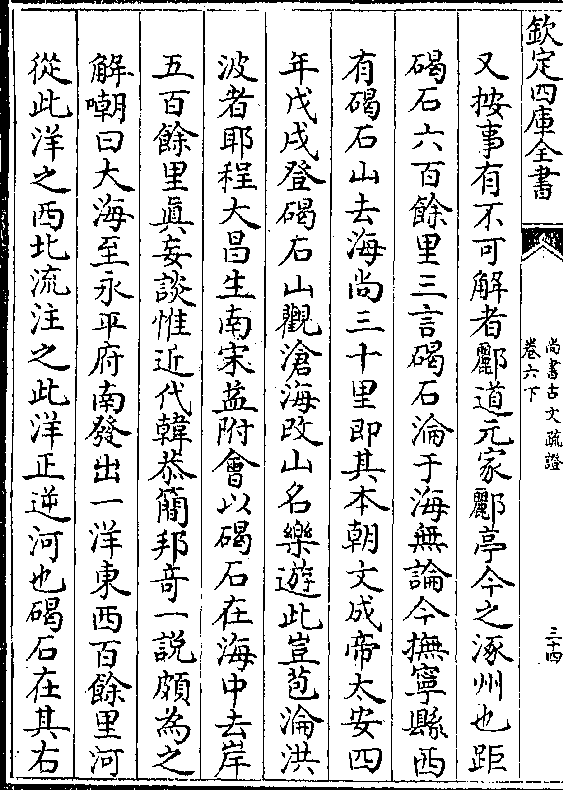 欽定四庫全書
尚書古文疏證
卷六下
三十四
又按事有不可解者酈道元家酈亭今之涿州也距
碣石六百餘里三言碣石淪于海無論今撫寧縣西
有碣石山去海尚三十里即其本朝文成帝太安四
年戊戌登碣石山觀滄海改山名樂遊此豈苞淪洪
波者耶程大昌生南宋益附會以碣石在海中去岸
五百餘里真妄談惟近代韓恭簡邦奇一説頗為之
解嘲曰大海至永平府南發出一洋東西百餘里河
從此洋之西北流注之此洋正逆河也碣石在其右